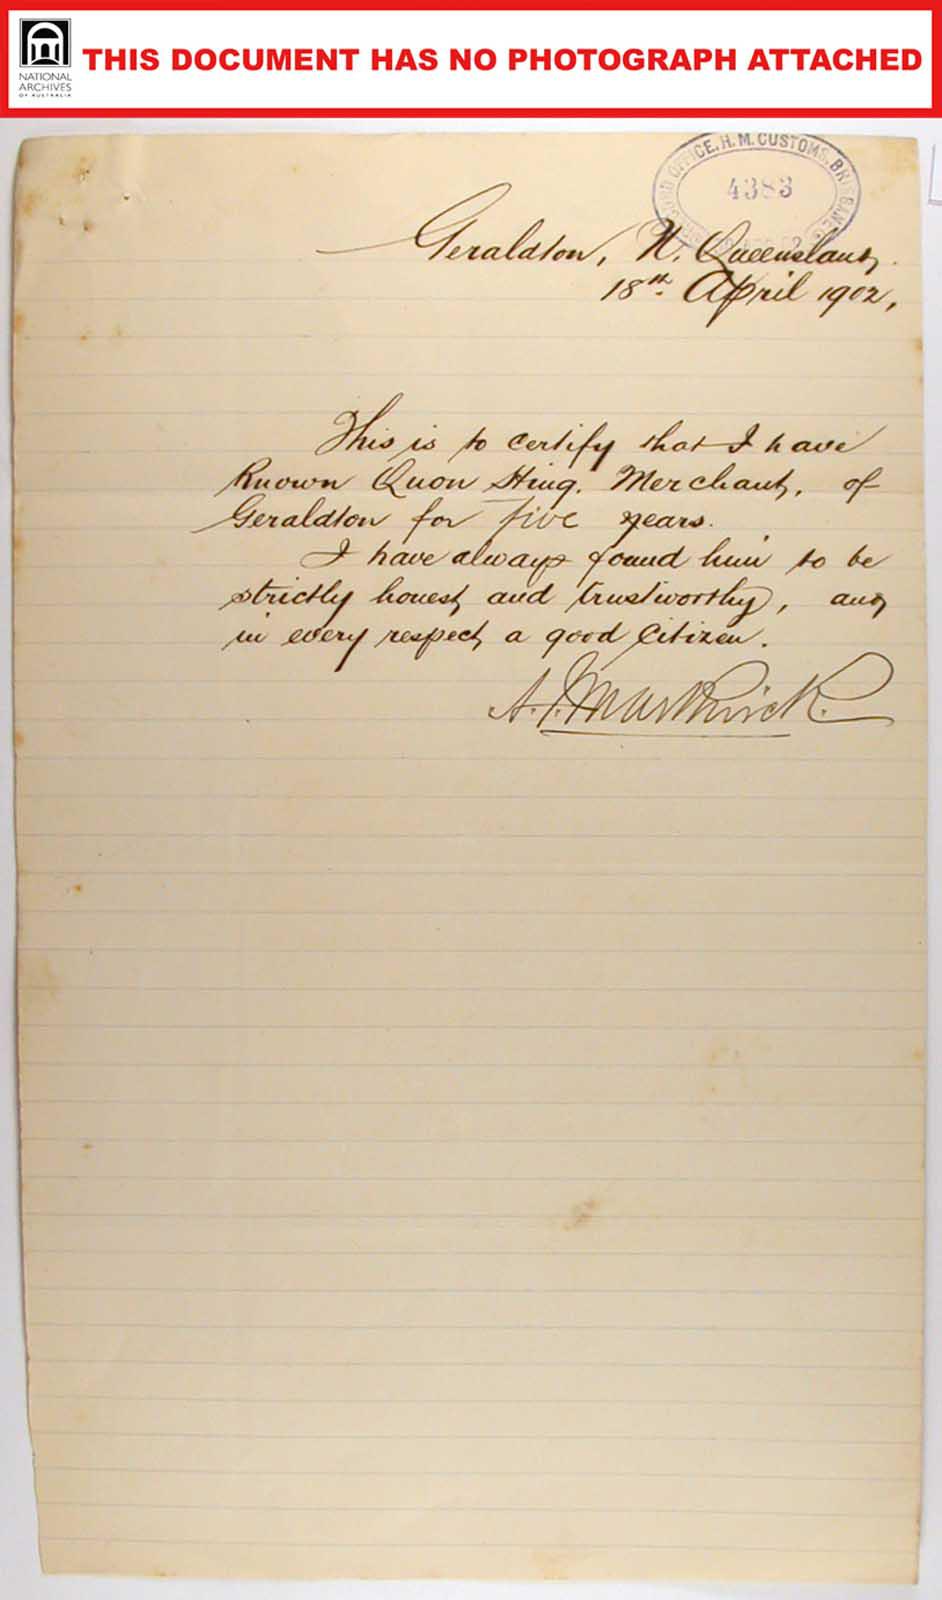 NATIONAL
ARCHIVES
OF AUSTRALIA
THIS DOCUMENT HAS NO PHOTOGRAPH ATTACHED
RECORD OFFICE. H. M. CUSTOMS. BRISBANE
4383
Geraldton, N. Queensland,
18th. April 1902,
This is to certify that I have
Known Quon Hing. Merchant, of
Geraldton for five years.
I have always found him to be
strictly honest, and trustworthy, and
in every respect, a good Citizen.